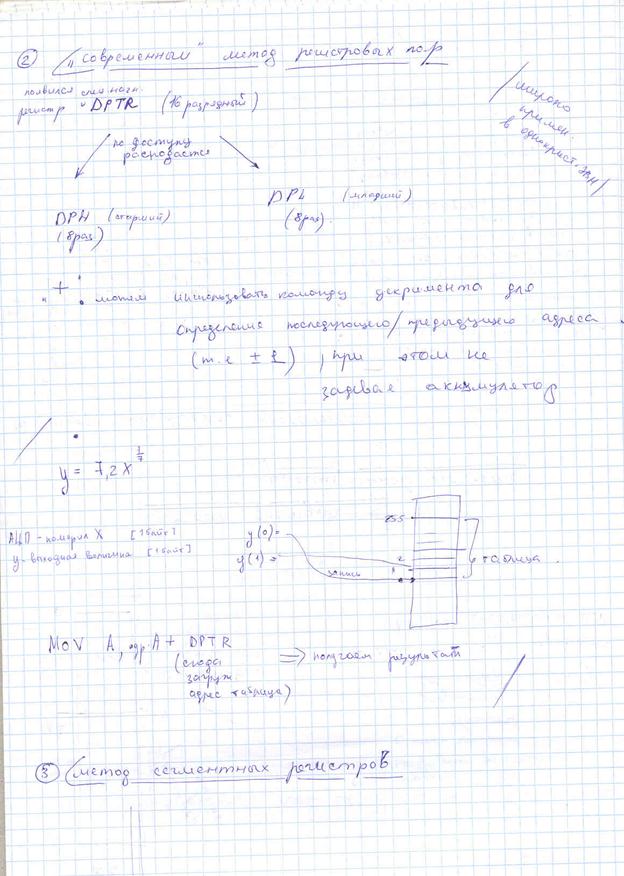 ② „современный" метод регистровых пар
появился спец. назн.
регистр "DPTR (16 разрядный)
/широко
примен.
в однокрист. ЭВМ/
по доступу
распадается
DPH (старший)
(8раз)
DPL (младший)
(8раз).
"+": можем использовать команду декримента для
определение последующего/предыдущего адреса.
(т.е ± 1), при этом не
задевая аккумулятор
y = 7,2 x^(1/7)
АЦП - померил X [1байт]
y - выходная величина [1байт]
y(0)=
y(1)=
запись
255
2
1
таблица.
MOV A, адр. A + DPTR
(сюда
загруж.
адрес таблица)
=> получаем результат
③ метод сегментных регистров